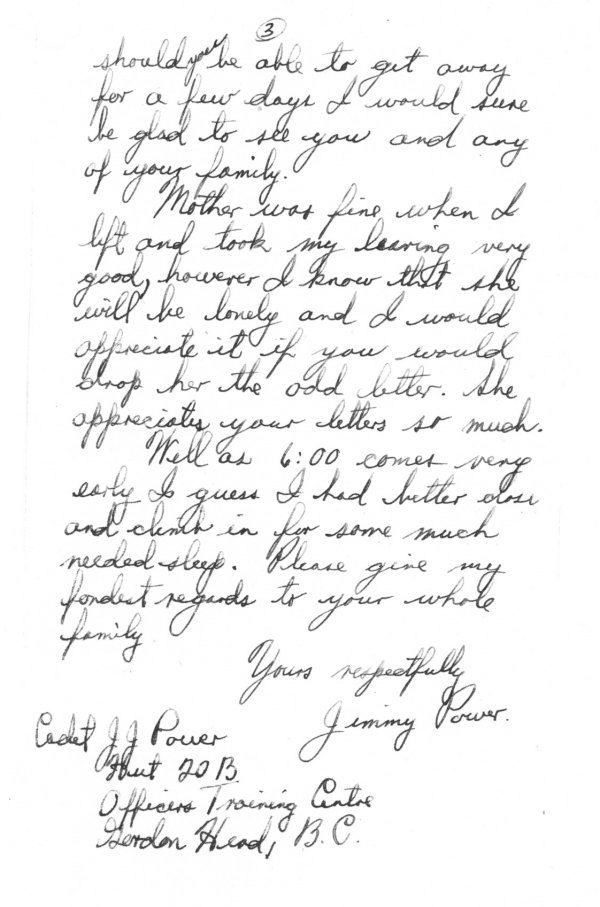 3
should you be able to get away
for a few days I would sure
be glad to see you and any
of your family.
Mother was fine when I
left and took my leaving very
good, however I know that she
will be lonely and I would
appreciate it if you would
drop her the odd letter. She
appreciates your letters so much.
Well as 6:00 comes very
early I guess I had better close
and climb in for some much
needed sleep. Please give my
fondest regards to your whole
family
Yours respectfully
Jimmy Power.
Cadet J J Power
Hut 20 B
Officers Training Centre
Gordon Head, B.C.